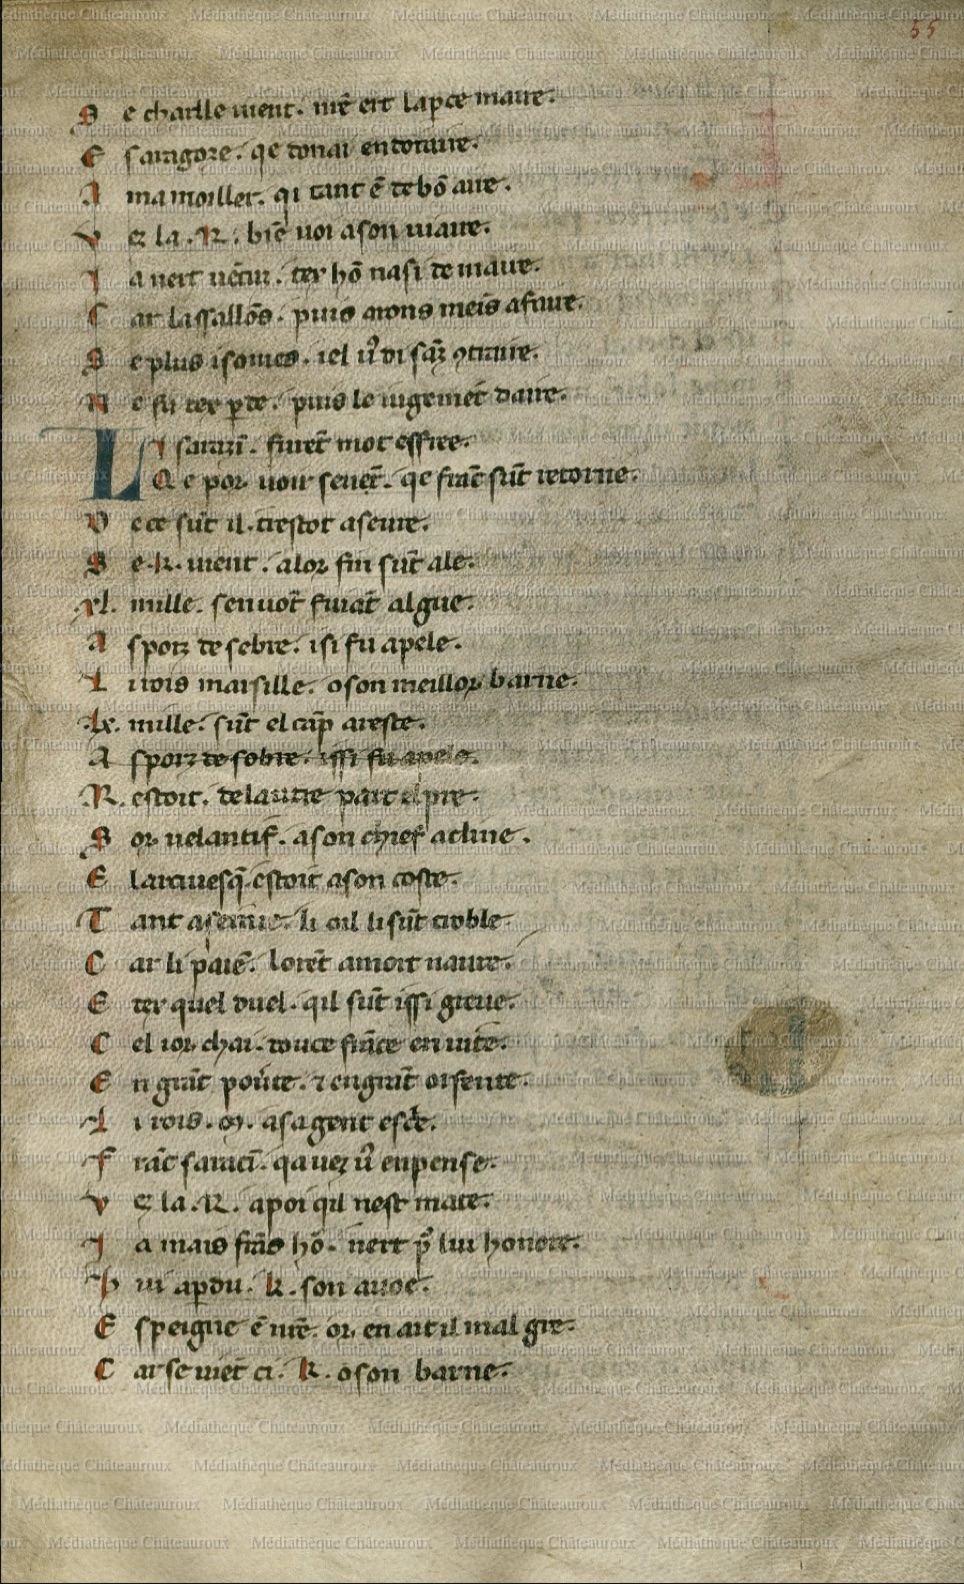 55
S e charlle uient. nr̄e ert la pce maue.
E saragoze. qe conai en toraue.
A ma moiller. qi tant ē de bō aue.
V ez la .R. biē uoi a son uiaue.
I a nert uēcuz. ter hō nasi de maue.
C ar lassallōs. puis arons meis afaue.
S e plus isomes. iel
N e fu ter pte. puis le iugemēt daue.
L I saraziñ. furēt mot effree.
Q e por uoir seuēt. qe frāc sūt retorne.
D e ce sūt il. trestot aseure.
S e .K. uient. alor fin sūt ale.
.xl. mille. sen uōt fuiāt al gue.
A sporz de sebre. isi fu apele.
L i rois marsille. o son meillor barne.
.lx. mille. sūt el cāp areste.
A sporz de sobre. issi fu apele.
R. estoit. de lautre part el pre.
S or uelantif. a son chief acline.
E larciuesq̄. estoit a son coste.
T ant a seinie. li oil li sūt troble.
C ar li paiē. lorēt a mort naure.
E ter quel duel. qil sūt issi greue.
C el ior chai. douce frāce en uite.
E n grāt pou̇te. ⁊ en grāt orfente.
L i rois .M. a sa gent escē.
F rāc saraciñ. qauez ur̄ enpense.
V ez la .R. a poi qil nest mate.
I a mais frās hō. nert p lui honore.
P ui a pdu. K. son auoe.
E speigne ē nr̄e. or en ait il mal gre.
C ar se uiēt ci. K. o son barne.